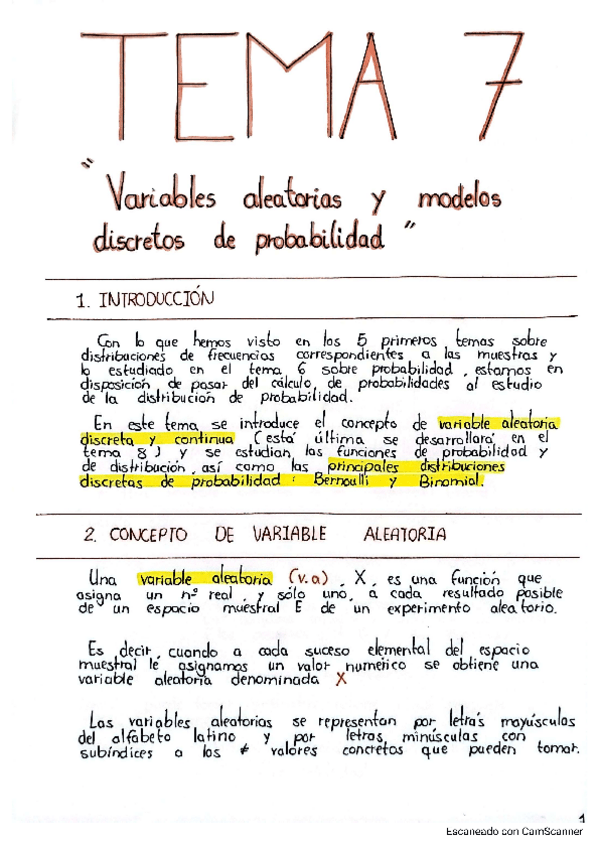 TEMA 7
"Variables aleatorias y modelos
discretos de probabilidad"
1. INTRODUCCIÓN
Con lo que hemos visto en los 5 primeros temas sobre
distribuciones de frecuencias correspondientes a las muestras y
lo estudiado en el tema 6 sobre probabilidad, estamos en
disposición de pasar del cálculo de probabilidades al estudio
de la distribución de probabilidad.
En este tema se introduce el concepto de variable aleatoria
discreta y continua (esta última se desarrollará en el
tema 8) y se estudian las funciones de probabilidad y
de distribución, así como las principales distribuciones
discretas de probabilidad: Bernoulli y Binomial.
2. CONCEPTO DE VARIABLE ALEATORIA
Una variable aleatoria (v.a), X, es una función que
asigna un nº real, y sólo uno, a cada resultado posible
de un espacio muestral E de un experimento aleatorio.
Es decir, cuando a cada suceso elemental del espacio
muestral le asignamos un valor numérico se obtiene una
variable aleatoria denominada X
Las variables aleatorias se representan por letras mayúsculas
del alfabeto latino y por letras minúsculas con
subíndices a los ≠ valores concretos que pueden tomar.
1
Escaneado con CamScanner